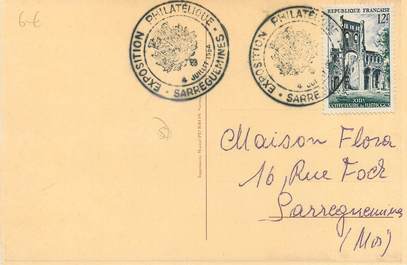 6-€
EXPOSITION PHILATÉLIQUE
4 JUILLET 1954
SARREGUEMINES
EXPOSITION PHILATÉLI
4 JUI
SARRE
RÉPUBLIQUE FRANÇAISE
12F
XIIIE CENTENAIRE DE JUMIÈGES
Maison Flora
16, Rue Foch
Sarreguemines